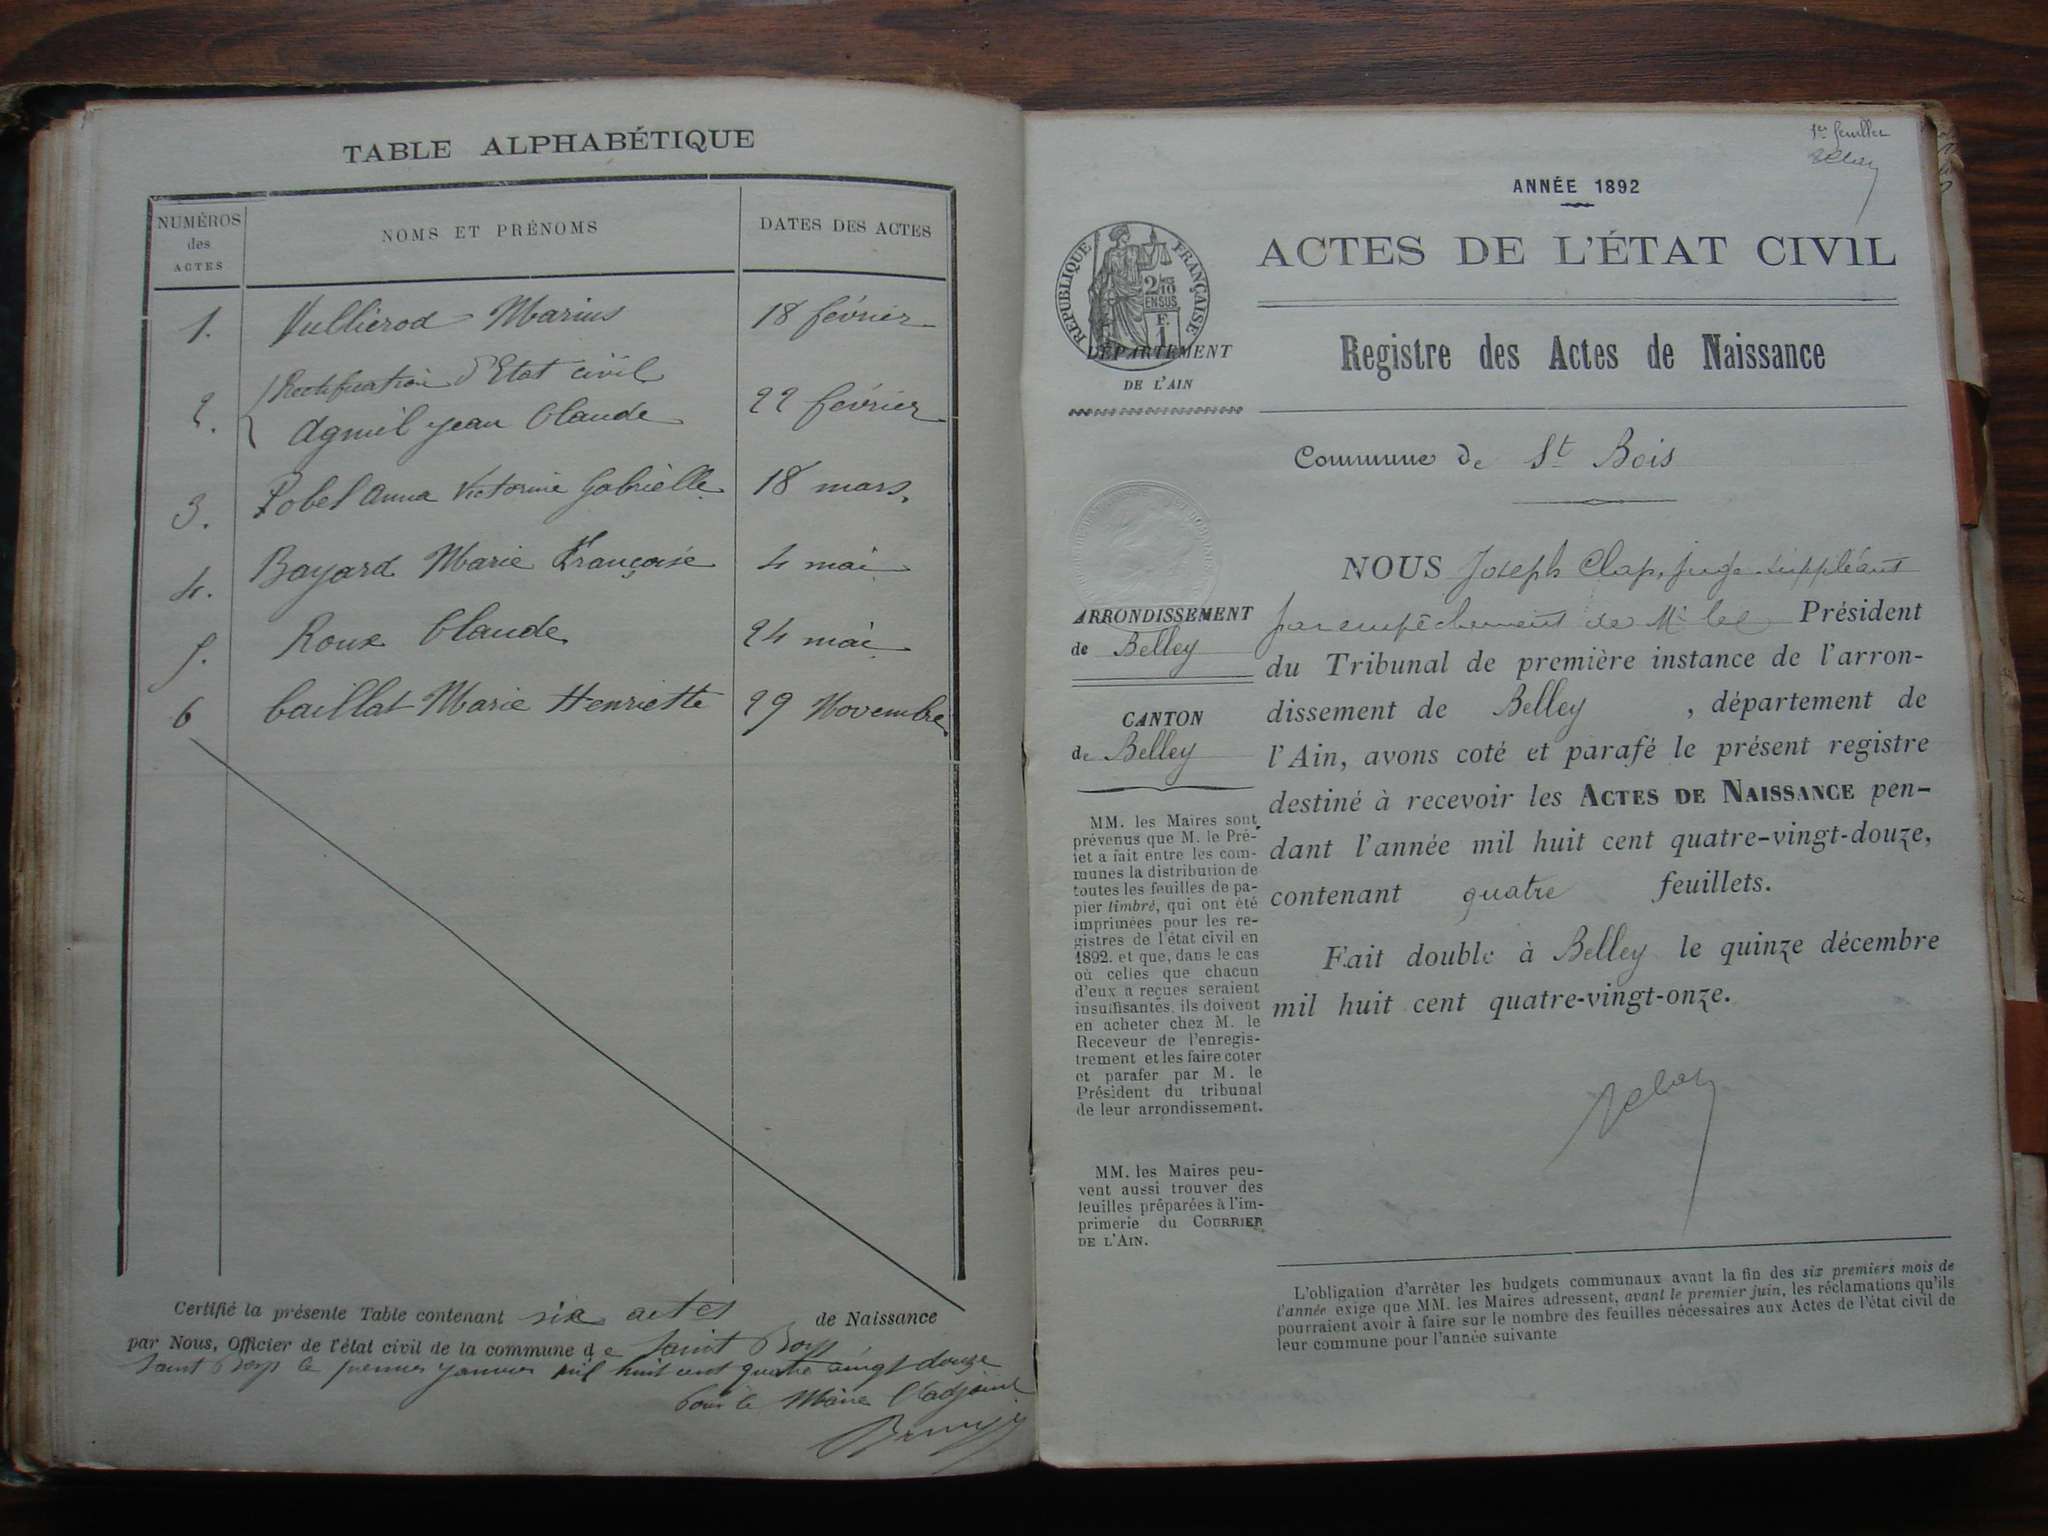 TABLE ALPHABÉTIQUE
NUMÉROS des ACTES
NOMS ET PRÉNOMS
DATES DES ACTES
1. Vullierod Marius 18 février
2. Rectification d'Etat civil
Agniel Jean Claude 22 février
3. Pobel Anna Victorine Gabrielle 18 mars.
4. Bayard Marie Françoise 4 mai
5. Roux Claude 24 mai
6 Caillat Marie Henriette 29 Novembre
Certifié la présente Table contenant six actes de Naissance
par Nous, Officier de l'état civil de la commune de Saint Boys
Saint Boys le premier janvier mil huit cent quatre vingt douze
Pour le Maire l'adjoint
1er feuillet
ANNÉE 1892
RÉPUBLIQUE FRANÇAISE
2/10 EN SUS
F. 1
ACTES DE L'ÉTAT CIVIL
DÉPARTEMENT
DE L'AIN
Registre des Actes de Naissance
Commune de St Bois
ARRONDISSEMENT
de Belley
CANTON
de Belley
NOUS Joseph Clap, juge suppléant
par empêchement de Mr le Président
du Tribunal de première instance de l'arron-
dissement de Belley , département de
l'Ain, avons coté et parafé le présent registre
destiné à recevoir les ACTES DE NAISSANCE pen-
dant l'année mil huit cent quatre-vingt-douze,
contenant quatre feuillets.
Fait double à Belley le quinze décembre
mil huit cent quatre-vingt-onze.
MM. les Maires sont
prévenus que M. le Pré-
fet a fait entre les com-
munes la distribution de
toutes les feuilles de pa-
pier timbré, qui ont été
imprimées pour les re-
gistres de l'état civil en
1892. et que, dans le cas
où celles que chacun
d'eux a reçues seraient
insuffisantes, ils doivent
en acheter chez M. le
Receveur de l'enregis-
trement et les faire coter
et parafer par M. le
Président du tribunal
de leur arrondissement.
MM. les Maires peu-
vent aussi trouver des
feuilles préparées à l'im-
primerie du COURRIER
DE L'AIN.
L'obligation d'arrêter les budgets communaux avant la fin des six premiers mois de
l'année exige que MM. les Maires adressent, avant le premier juin, les réclamations qu'ils
pourraient avoir à faire sur le nombre des feuilles nécessaires aux Actes de l'état civil de
leur commune pour l'année suivante